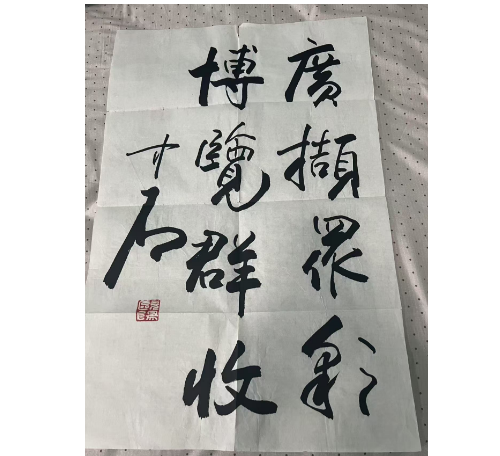 廣擷眾彩
博覽群收
石